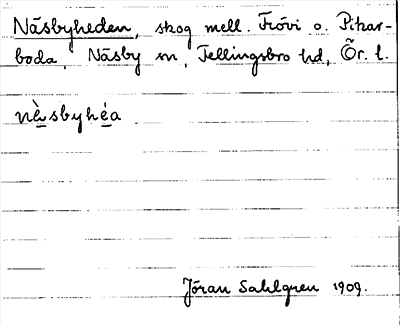 Näsbyheden, skog mell. Frövi o. Pikar-
boda, Näsby sn, Fellingsbro hd, Ör. l.
nä̀sbyhéa
Jöran Sahlgren 1909.